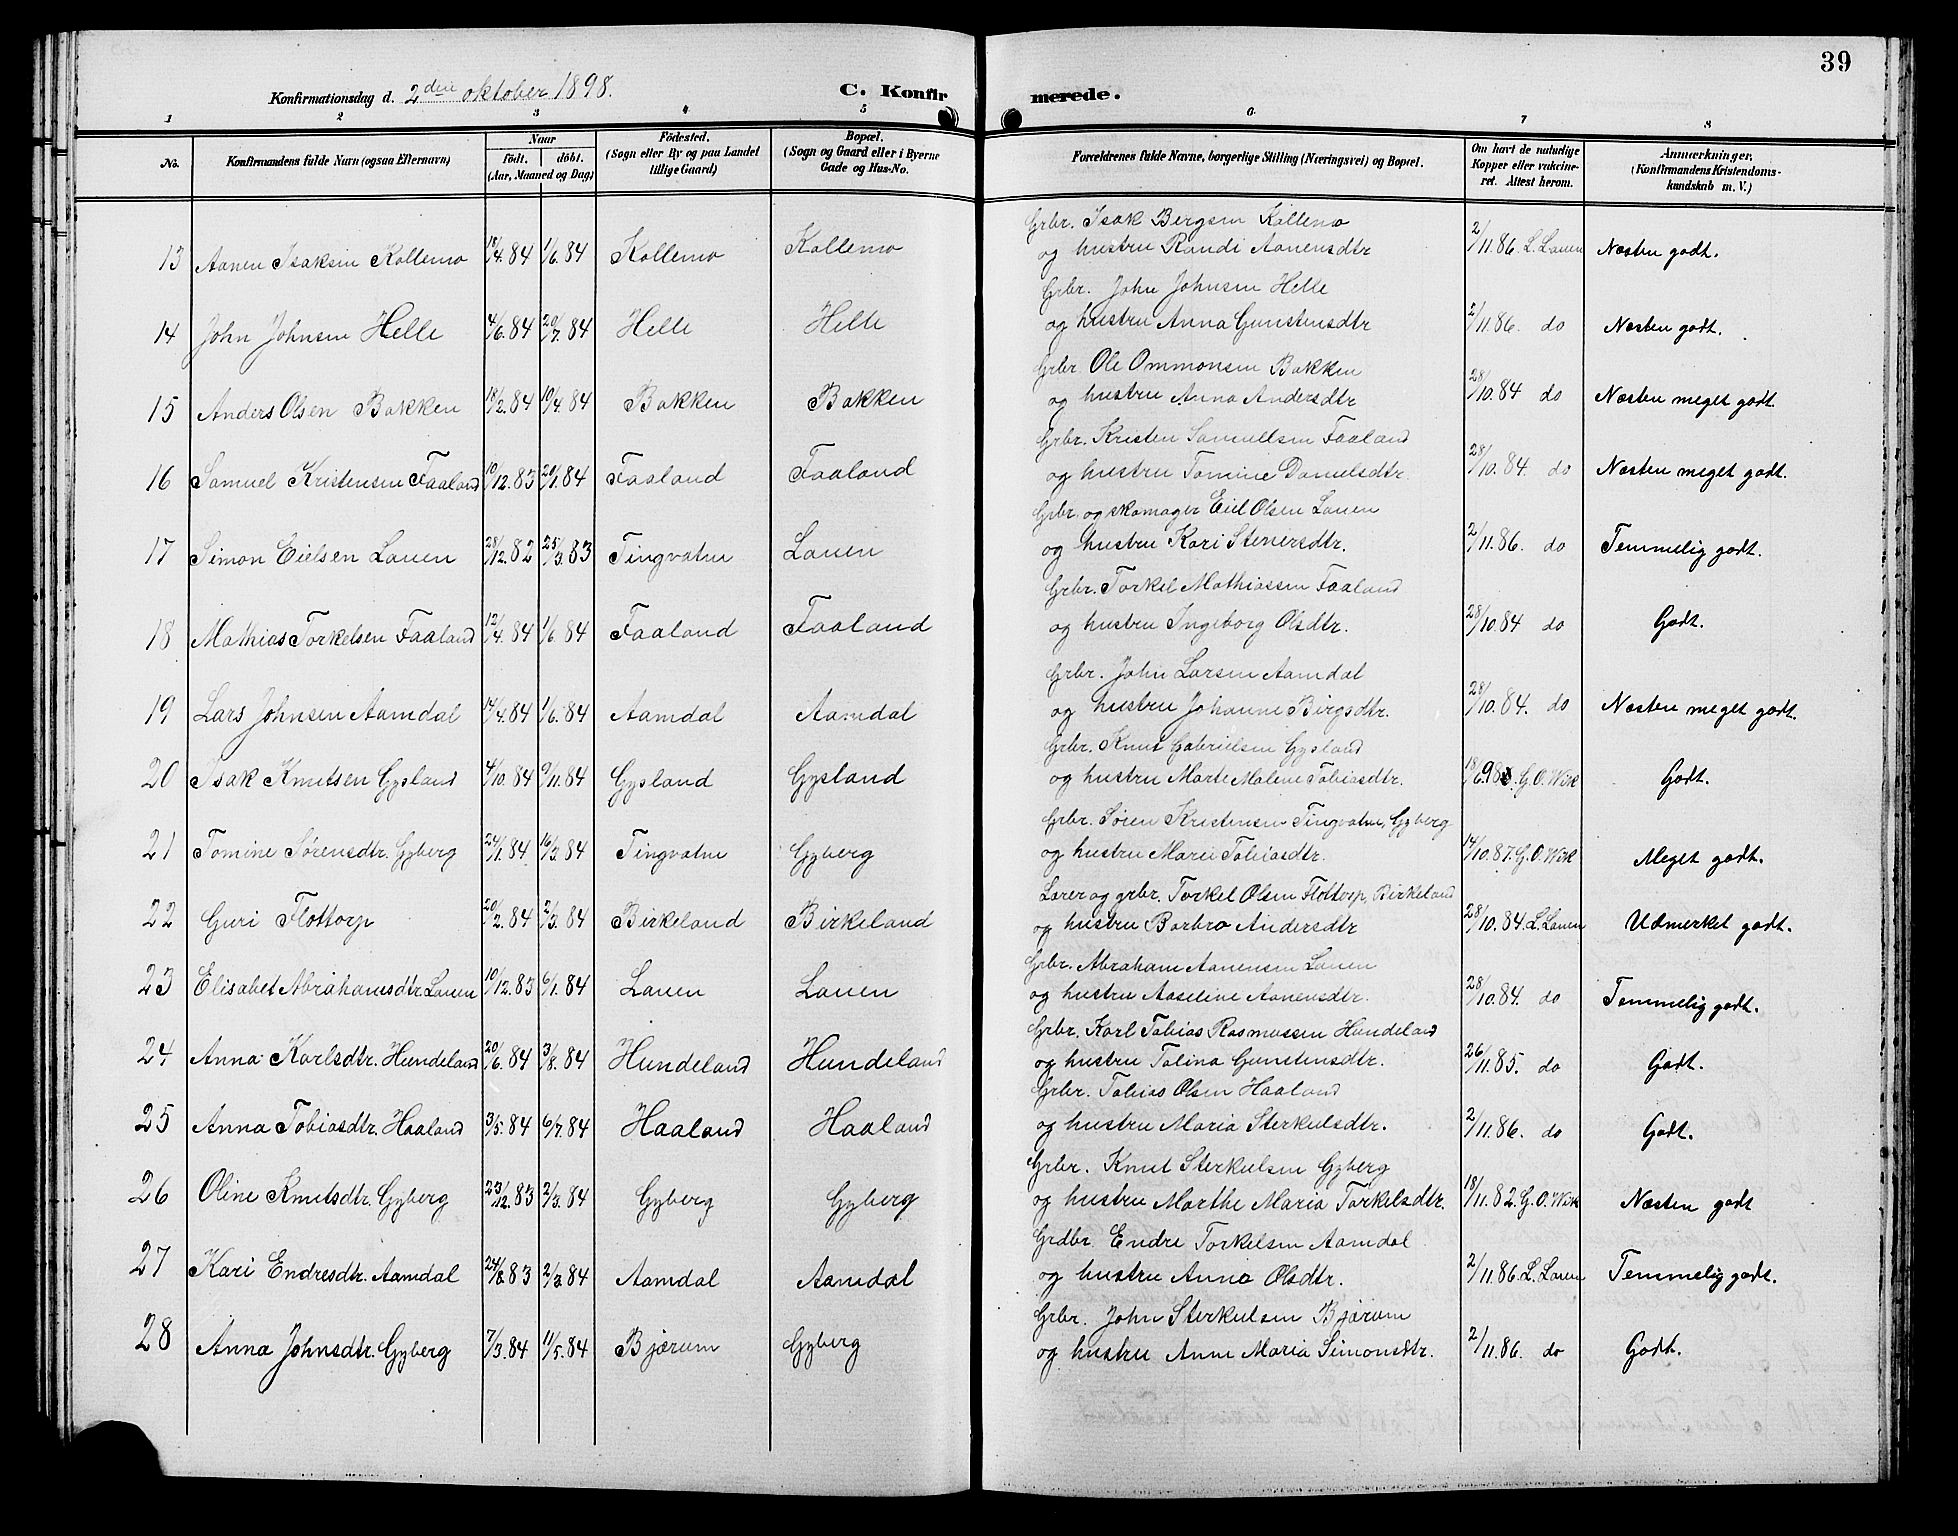 39
Konfirmationsdag d. 2den oktober 1898. C. Konfirmerede.
1 2 3 4 5 6 7 8
No. Konfirmandens fulde Navn (ogsaa Efternavn) Naar födt. döbt. (Aar, Maaned og Dag) Födested. (Sogn eller By og paa Landet tillige Gaard) Bopæl. (Sogn og Gaard eller i Byerne Gade og Hus-No. Forældrenes fulde Navne, borgerlige Stilling (Næringsvei) og Bopæl. Om havt de naturlige Kopper eller vakcineret. Attest herom. Anmærkninger. (Konfirmandens Kristendomskundskab m. V.)
Grbr. Isak Bergsen Kollemo
13 Aanen Isaksen Kollemo 18/4.84 1/6.84 Kollemo Kollemo og hustru Randi Aanensdtr 2/11.86. L. Lauen Næsten godt.
Grbr. John Johnsen Helle
14 John Johnsen Helle 4/6.84 20/7.84 Helle Helle og hustru Anna Gunstensdtr 2/11.86. do Næsten godt.
Grbr Ole Ommonsen Bakken
15 Anders Olsen Bakken 18/2.84 10/4.84 Bakken Bakken og hustru Anna Andersdtr 28/10.84 do Næsten meget godt.
Grbr. Kristen Samuelsen Faaland
16 Samuel Kristensen Faaland 10/12.83 20/1.84 Faaland Faaland og hustru Tomine Danielsdtr. 28/10.84. do Næsten meget godt.
Grbr. og skomager Eiel Olsen Lauen
17 Simon Eielsen Lauen 28/12.82 25/3.83 Tingvatne Lauen og hustru Kari Steniersdtr. 2/11.86. do Temmelig godt.
Grbr. Torkel Mathiassen Faaland
18 Mathias Torkelsen Faaland 12/4.84 1/6.84 Faaland Faaland og hustru Ingeborg Olsdtr. 28/10.84 do Godt.
Grbr. John Larsen Aamdal
19 Lars Johnsen Aamdal 14/4.84 1/6.84 Aamdal Aamdal og hustru Johanne Birgsdtr. 28/10.84. do Næsten meget godt.
Grbr. Knut Gabrielsen Gysland
20 Isak Knutsen Gysland 4/10.84 9/11.84 Gysland Gysland og hustru Marte Malene Tobiasdtr. G. O. Wik Godt.
Grbr. Søren Kristensen Tingvatne, Gyberg
21 Tomine Sørensdtr. Gyberg 24/1.84 16/3.84 Tingvatne Gyberg og hustru Marie Tobiasdtr. 14/10.87. G. O. Wik Meget godt.
Lærer og grbr. Torkel Olsen Flottorp, Birkeland
22 Guri Flottorp 20/2.84 2/3.84 Birkeland Birkeland og hustru Barbro Andersdtr 28/10.84. L. Lauen Udmerket godt.
Grbr. Abraham Aanensen Lauen
23 Elisabet Abrahamsdtr Lauen 10/12.83 6/1.84 Lauen Lauen og hustru Aaseline Aanensdtr. 28/10.84. do Temmelig godt.
Grbr. Karl Tobias Rasmussen Hundeland
24 Anna Karlsdtr. Hundeland 20/6.84 3/8.84 Hundeland Hundeland og hustru Talina Gunstensdtr. 26/11.85. do Godt.
Grbr. Tobias Olsen Haaland
25 Anna Tobiasdtr. Haaland 3/5.84 6/7.84 Haaland Haaland og hustru Maria Sterkulsdtr. 2/11.86. do Godt.
Grbr. Knut Sterkulsen Gyberg
26 Oline Knutsdtr. Gyberg 23/12.83 2/3.84 Gyberg Gyberg og hustru Marthe Maria Torkelsdtr. 18/11.82. G. O. Wik Næsten godt
Grdbr. Endre Torkelsen Aamdal
27 Kari Endresdtr. Aamdal Aamdal Aamdal og hustru Anna Olsdtr. 2/11.86. L. Lauen Temmelig godt.
Grbr. John Sterkulsen Bjærum
28 Anna Johnsdtr. Gyberg 7/3.84 11/5.84 Bjærum Gyberg og hustru Anne Maria Simonsdtr. 2/11.86. do Godt.